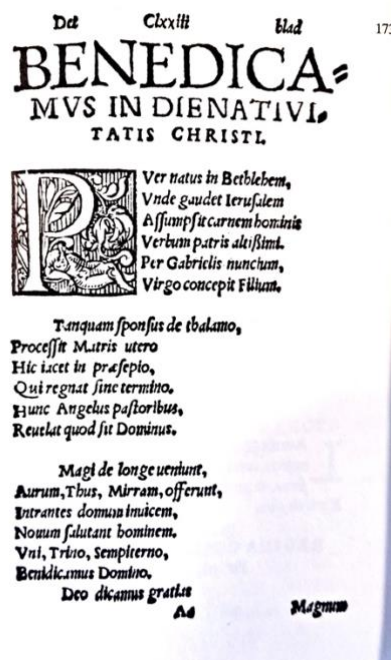 Det Clxxiii blad
173
BENEDICA=
MVS IN DIE NATIVI,
TATIS CHRISTI.
PVer natus in Bethlehem,
Vnde gaudet Ierusalem
Assumpsit carnem hominis
Verbum patris altißimi.
Per Gabrielis nuncium,
Virgo concepit Filium.
Tanquam sponsus de thalamo,
Processit Matris utero
Hic iacet in præsepio,
Qui regnat sine termino.
Hunc Angelus pastoribus,
Reuelat quod sit Dominus.
Magi de longe ueniunt,
Aurum, Thus, Mirram, offerunt,
Intrantes domum inuicem,
Nouum salutant hominem.
Vni, Trino, Sempiterno,
Benidicamus Domino.
Deo dicamus gratias
Aa Magnum